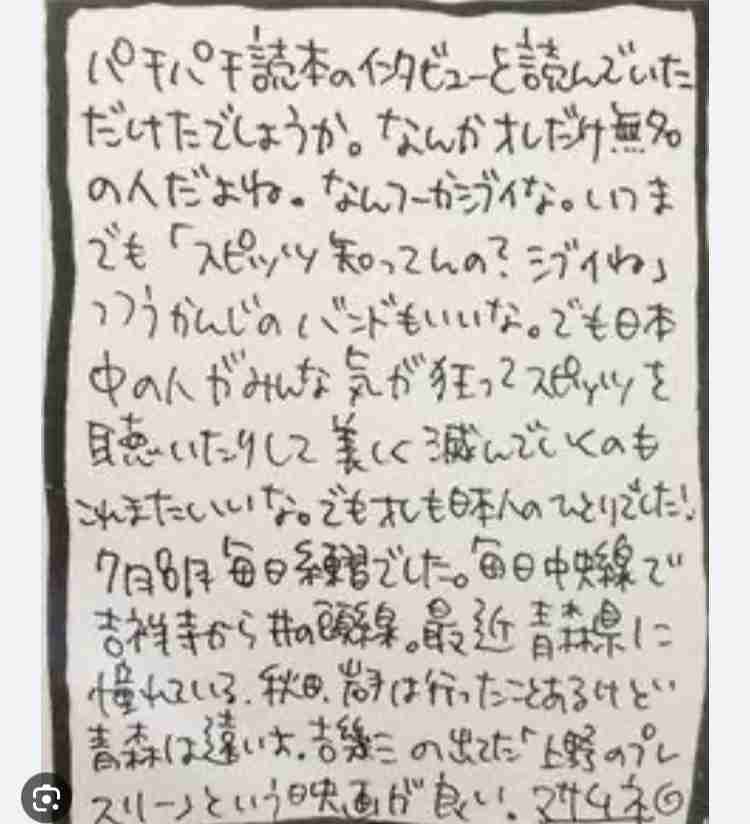 パチパチ読本のインタビューを読んでいた
だけたでしょうか。なんかオレだけ無名
の人だよね。なんつーかシブイな。いつま
でも「スピッツ知ってんの？シブイね」
っつうかんじのバンドもいいな。でも日本
中の人がみんな気が狂ってスピッツを
聴いたりして美しく滅んでいくのも
これまたいいな。でもオレも日本人のひとりでした!
7月8月毎日練習でした。毎日中央線で
吉祥寺から井の頭線。最近青森県に
憧れている。秋田、岩手は行ったことあるけど
青森は遠いよ。吉幾三の出てた「上野のプレ
スリー」という映画が良い。マサムネ